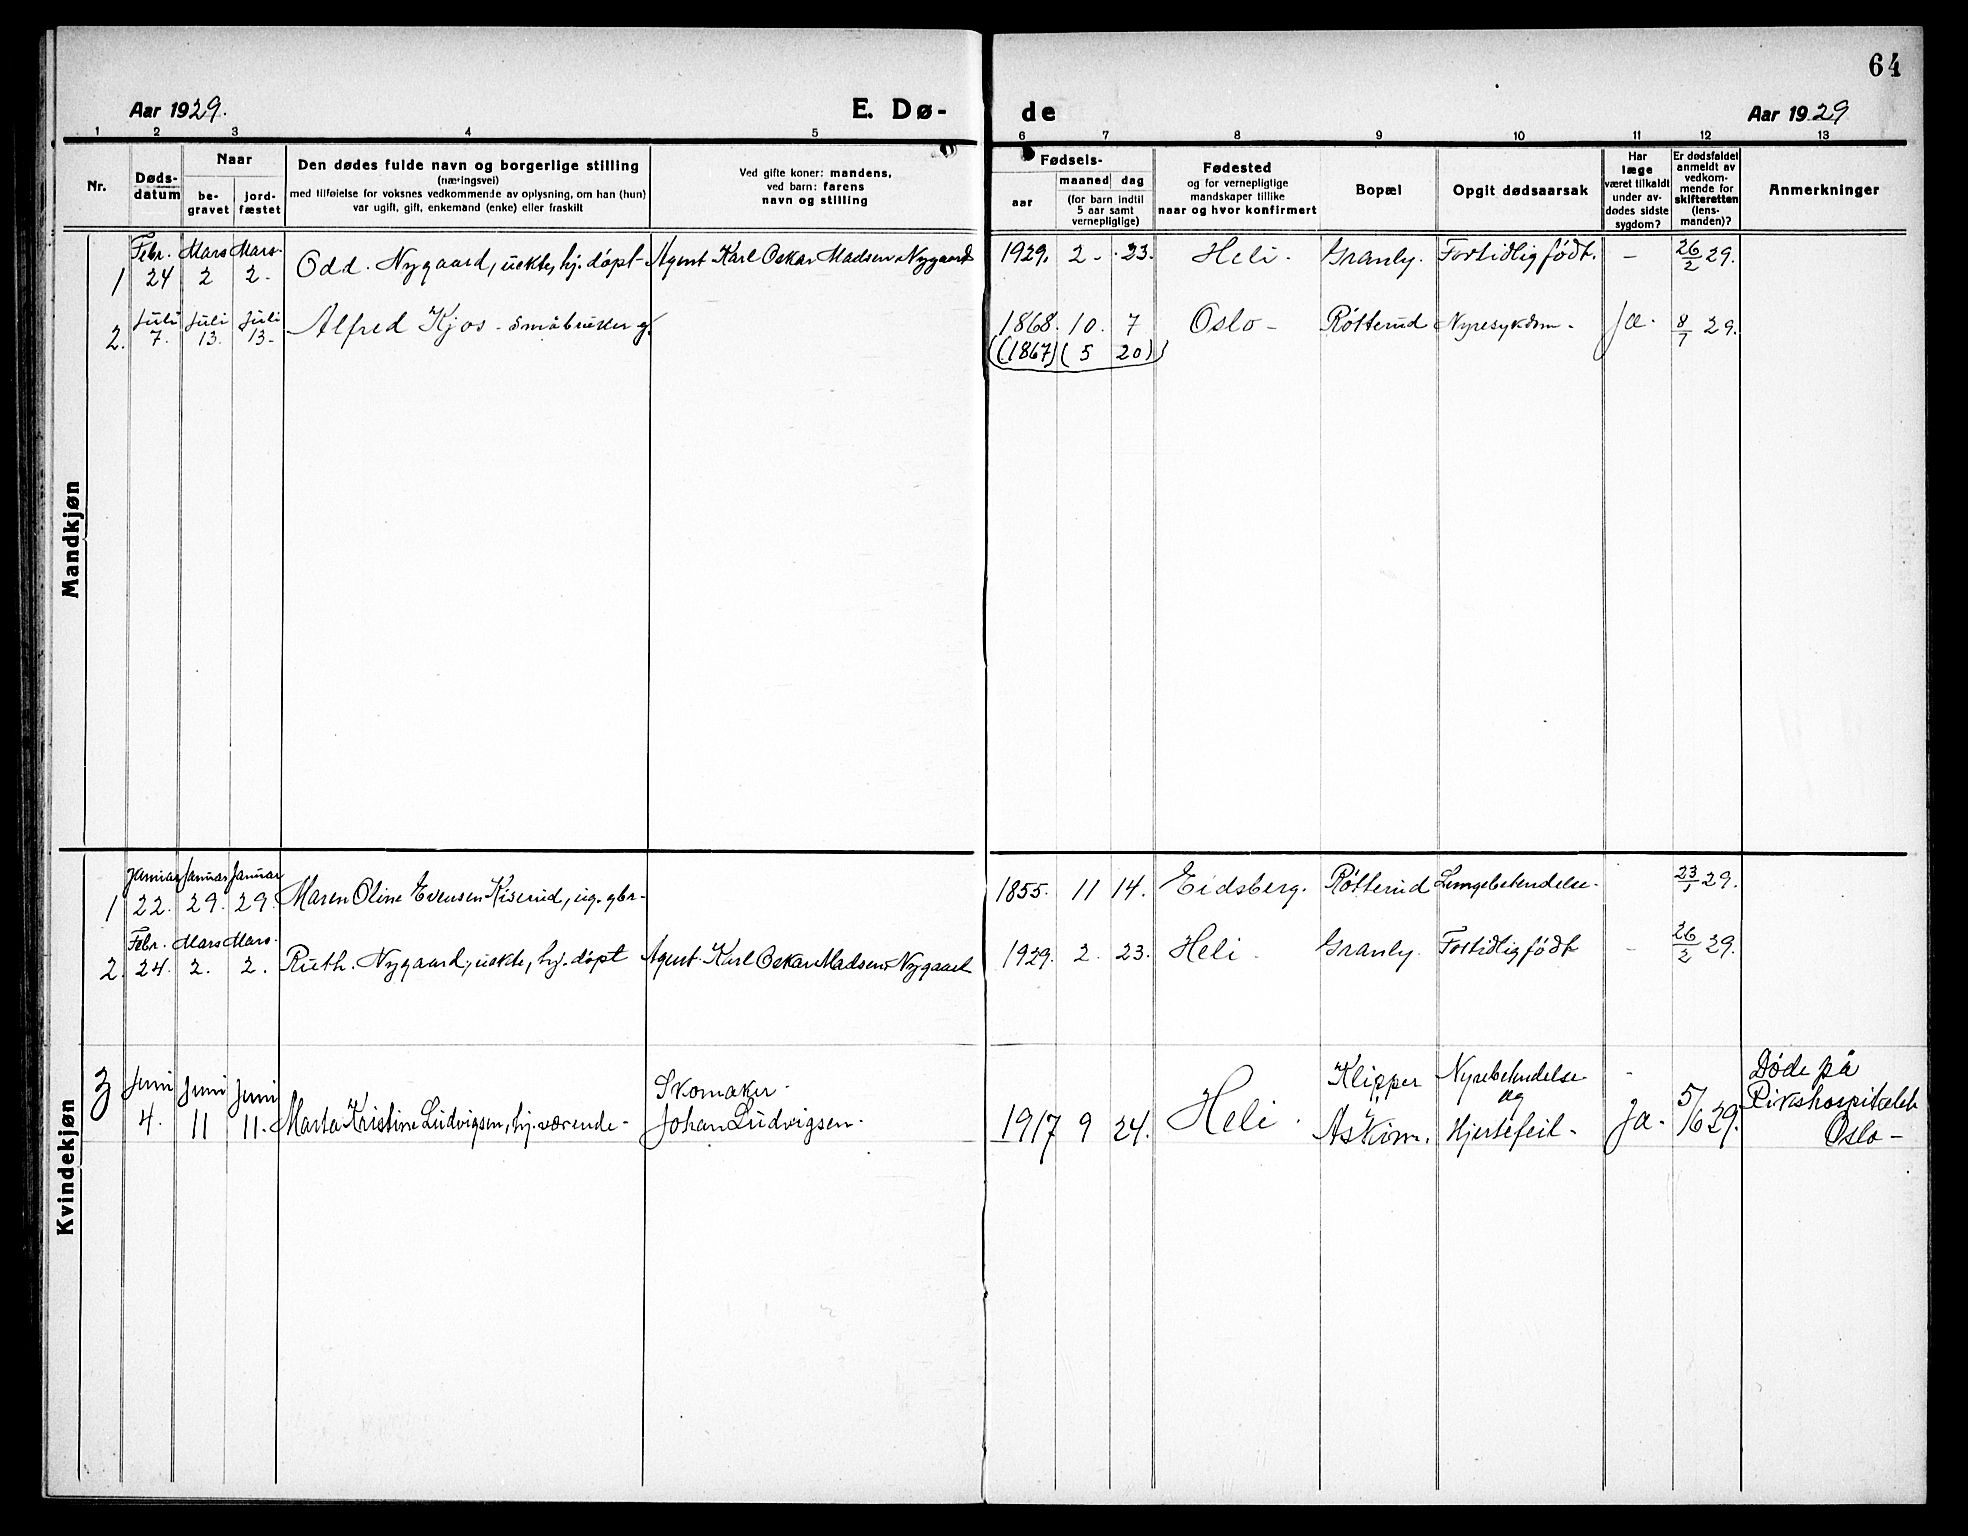 64
Aar 1929.
E. Dø-
de
Aar 1929
1 2 3 4 5 6 7 8 9 10 11 12 13
Nr.
Døds-
datum
Naar
be-
gravet
jord-
fæstet
Den dødes fulde navn og borgerlige stilling
(næringsvei)
med tilføielse for voksnes vedkommende av oplysning, om han (hun)
var ugift, gift, enkemand (enke) eller fraskilt
Ved gifte koner: mandens,
ved barn: farens
navn og stilling
Fødsels-
aar
maaned dag
(for barn indtil
5 aar samt
vernepligtige)
Fødested
og for vernepligtige
mandskaper tillike
naar og hvor konfirmert
Bopæl
Opgit dødsaarsak
Har
læge
været tilkaldt
under av-
dødes sidste
sygdom?
Er dødsfaldet
anmeldt av
vedkom-
mende for
skifteretten
(lens-
manden)?
Anmerkninger
Mandkjøn
Febr. Mars Mars.
1 24 2 2- Odd. Nygaard, uekte, hj. døpt - Agent Karl Oskar Madsen Nygaard 1929. 2 - 23. Heli - Granly. Fortidlig født. - 26/2 29.
Juli Juli Juli
2. 7. 13. 13- Alfred Kjos - småbruker g. 1868. 10. 7 Oslo - Røtterud Nyresykdom - Ja - 8/7 29.
(1867) (5 20)
Kvindekjøn
Januar Januar Januar
1 22. 29. 29. Maren Oline Evensen Kiserud, ug. gbr- 1855. 11 14. Eidsberg. Røtterud Lungebetendelse. 23/1 29.
Febr. Mars Mars.
2. 24. 2. 2. Ruth. Nygaard, uekte, hj. døpt Agent Karl Oskar Madsen Nygaard 1929. 2. 23. Heli - Granly. Fortidlig født - 26/2 29.
3 Juni Juni Juni
4. 11 11. Marta Kristine Ludvigsen, hj. værende -
Skomaker -
Johan Ludvigsen -
1917 9 24. Heli -
Klipper
Askim.
Nyrebetendelse
og
Hjertefeil -
Ja - 5/6 29.
Døde på
Rikshospitalet
Oslo -